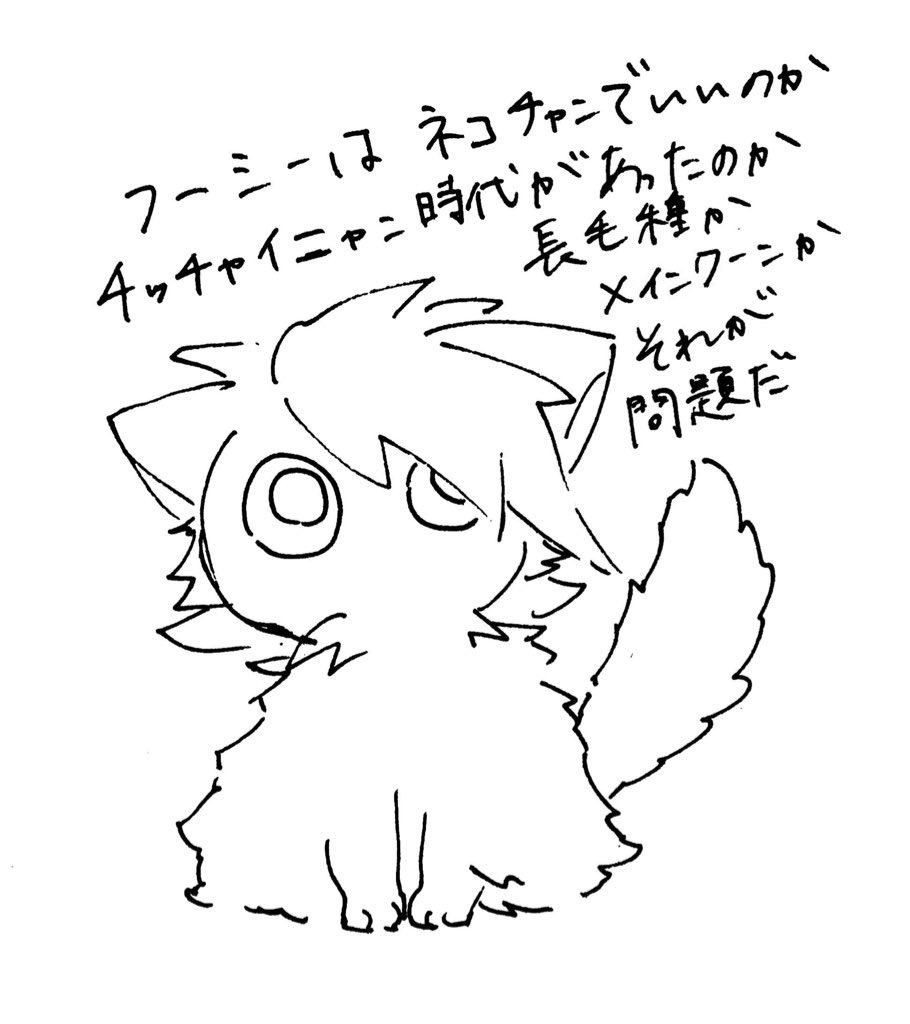 フーミーは ネコチャンでいいのか
チッチャイニャン時代があったのか
長毛種か
メインクーンか
それが
問題だ